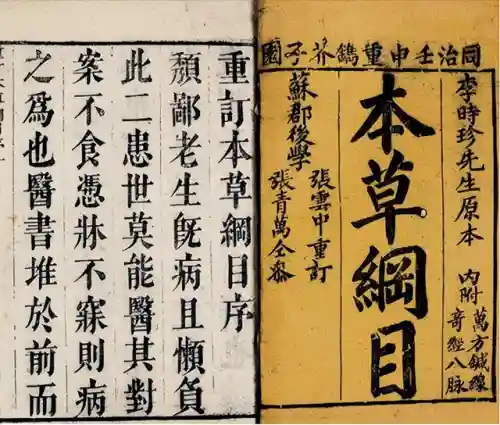 同治壬申重鐫芥子園
李時珍先生原本
內附
萬方鍼線
奇經八脉
本草綱目
張雲中重訂
蘇郡後學
張青萬仝叅
重訂本草綱目序
頽鄙老生旣病且懶負
此二患世莫能醫其對
案不食憑牀不寐則病
之爲也醫書堆於前而